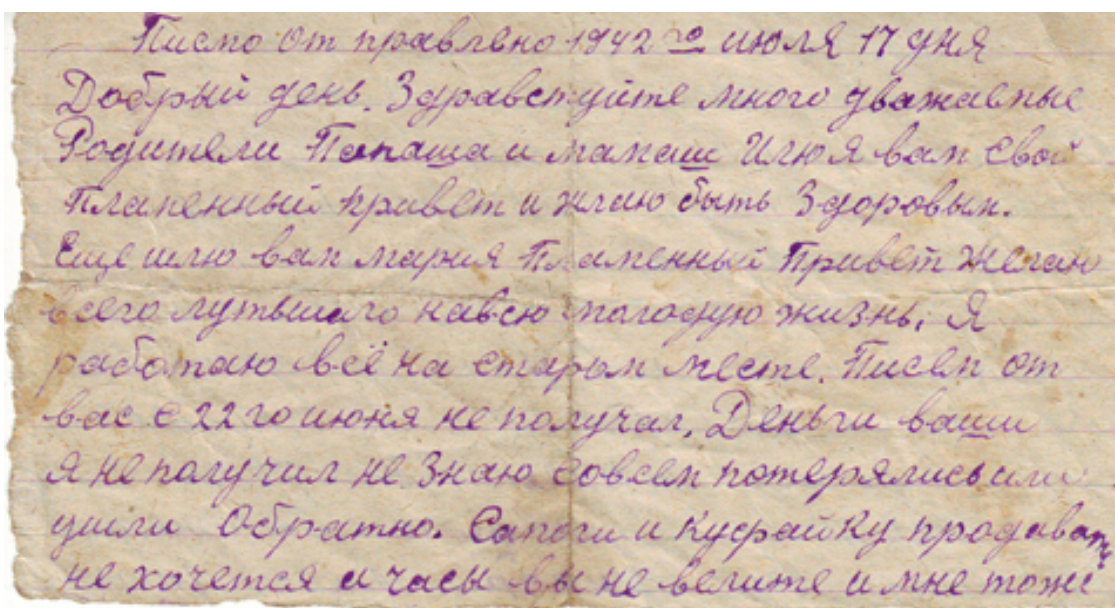 Писмо от правлено 1942 го июля 17 дня
Добрый день. Здравствуйте много уважаемые
Родители Папаша и мамаш Шлю я вам свой
Пламенный привет и жлаю быть Здоровым.
Еще шлю вам мария Пламенный Привет Желаю
всего лутьшаго навсю молодую жизнь. Я
работаю всё на старом месте. Писем от
вас с 22 го июня не получал. Деньги ваши
я не получил не знаю совсем потерялись или
ушли Обратно. Сапоги и Куфайку продавать
не хочется и часы вы не велите и мне тоже